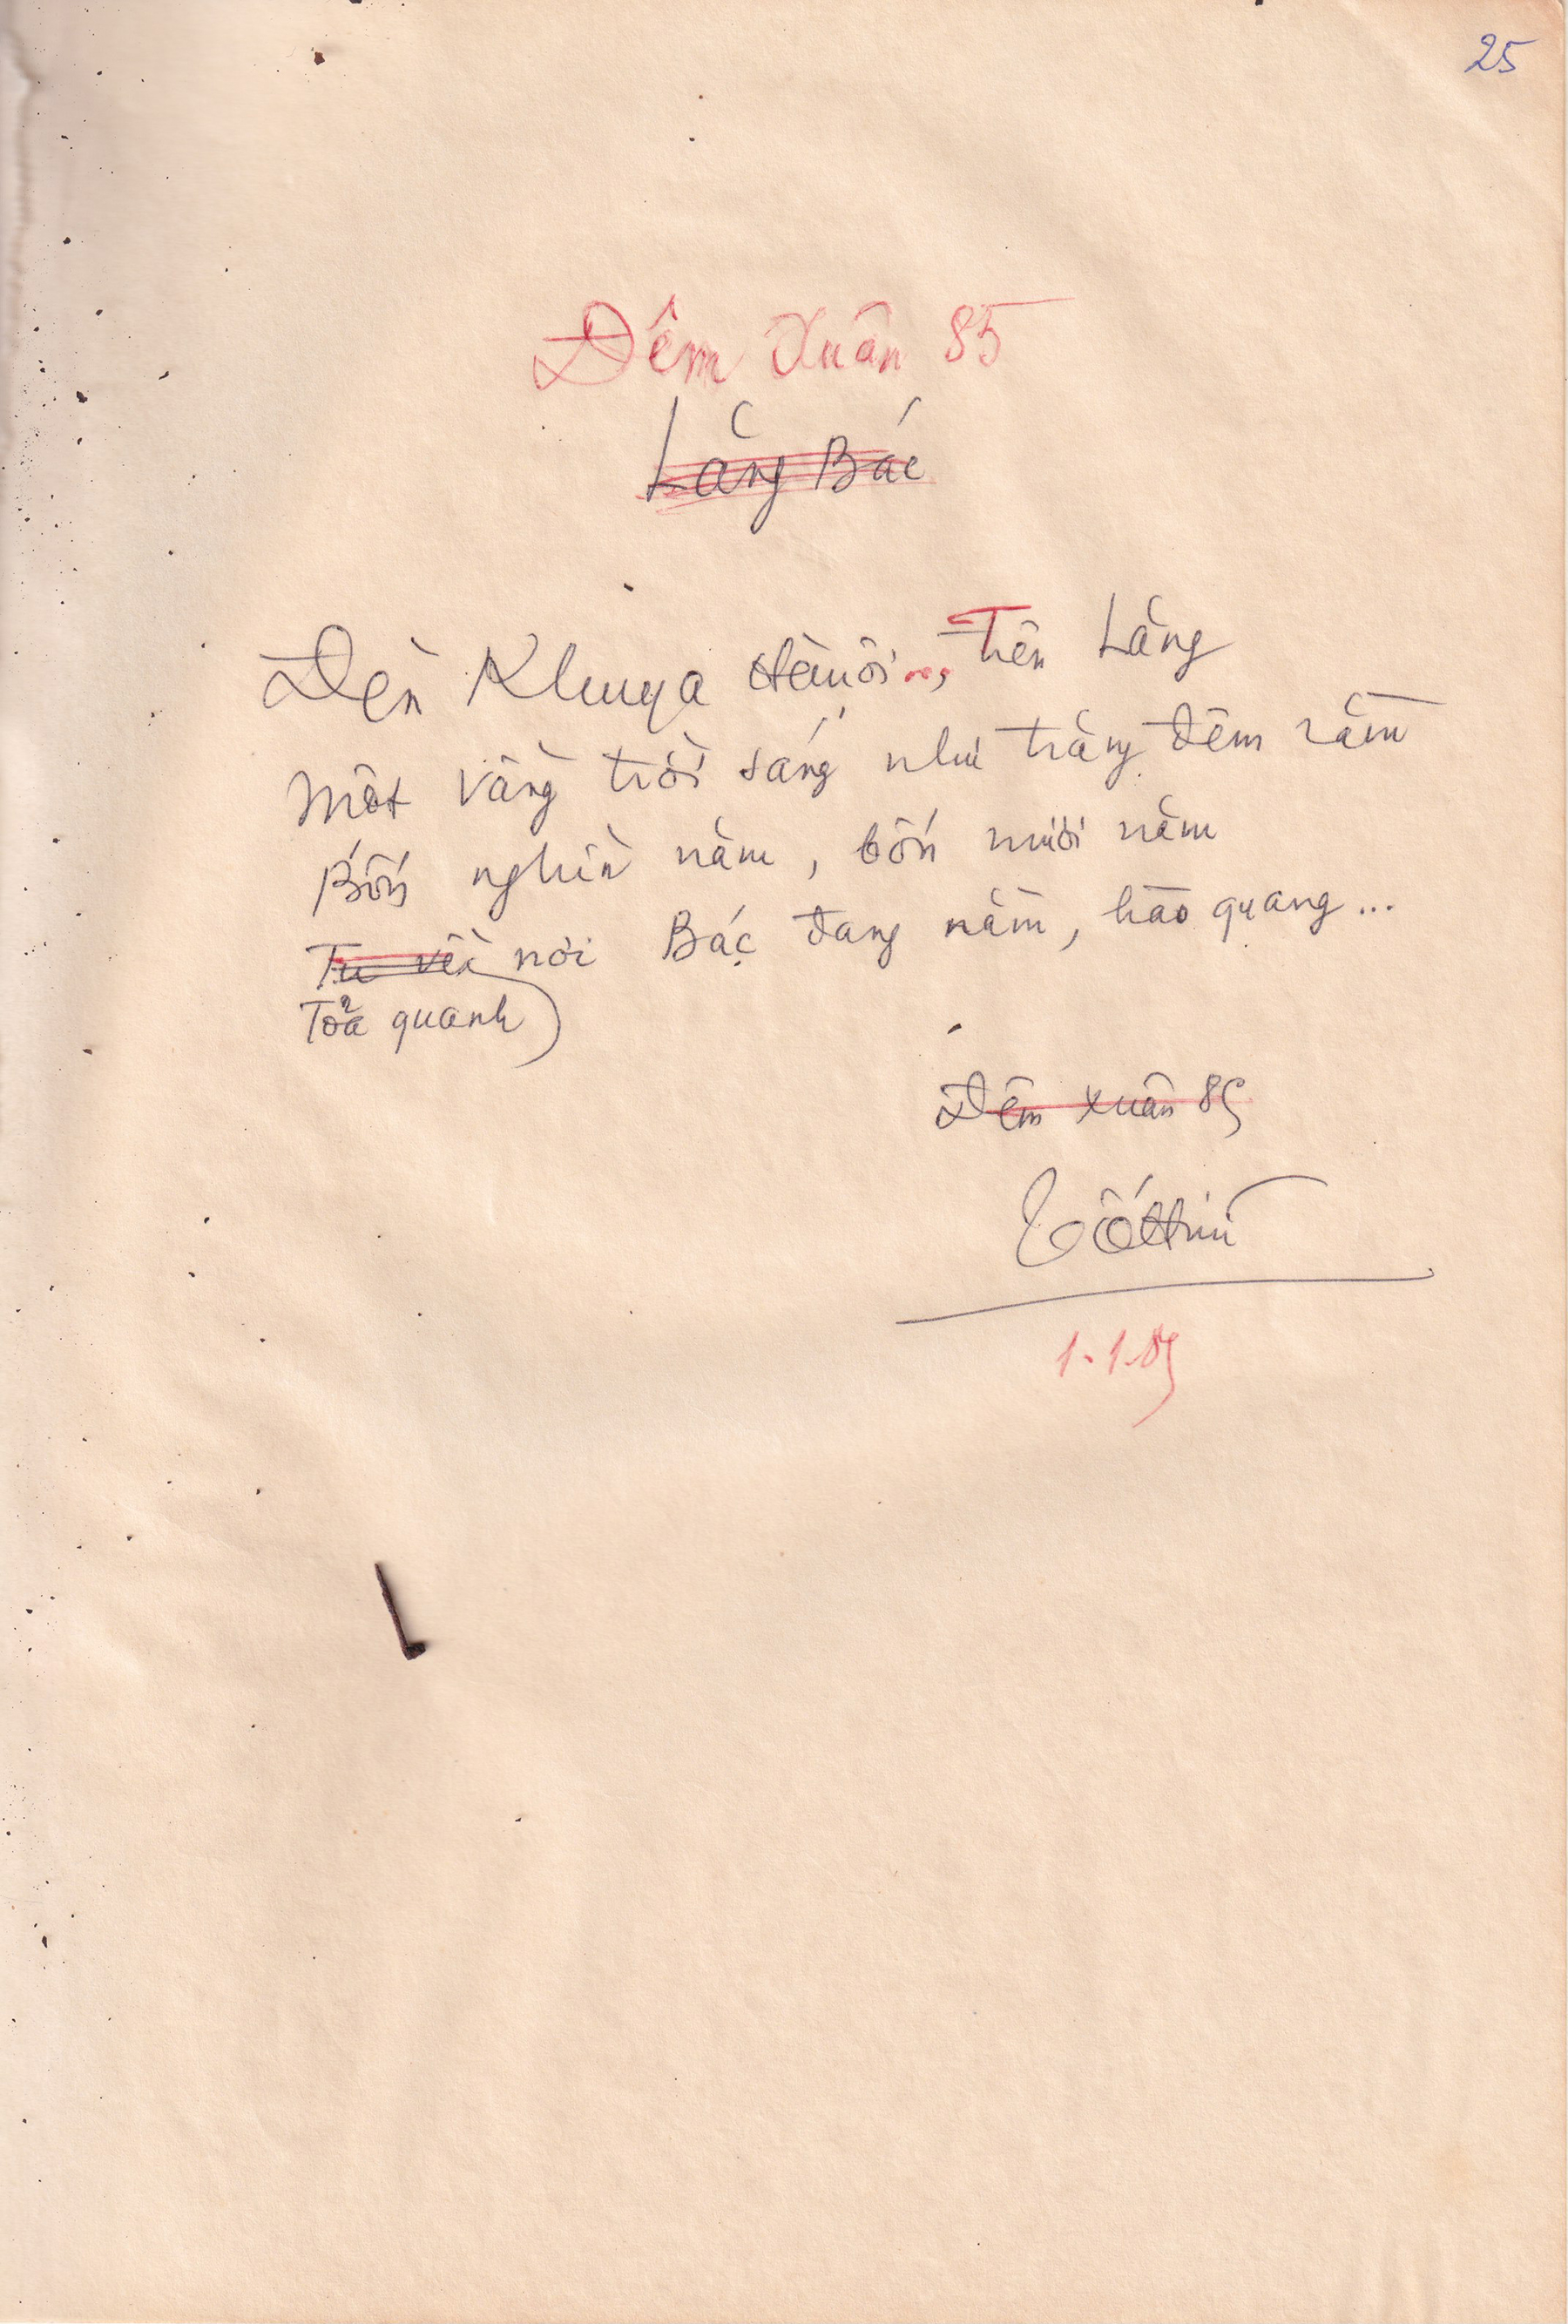 25
Đêm Xuân 85
Lăng Bác
Đèn Khuya Hànội..., Trên Lăng
Một vầng trời sáng như trăng đêm rằm
Bốn nghìn năm, bốn mươi năm
Tụ về nơi Bác đang nằm, hào quang...
Toả quanh
Đêm xuân 85
Tố Hữu
1.1.85